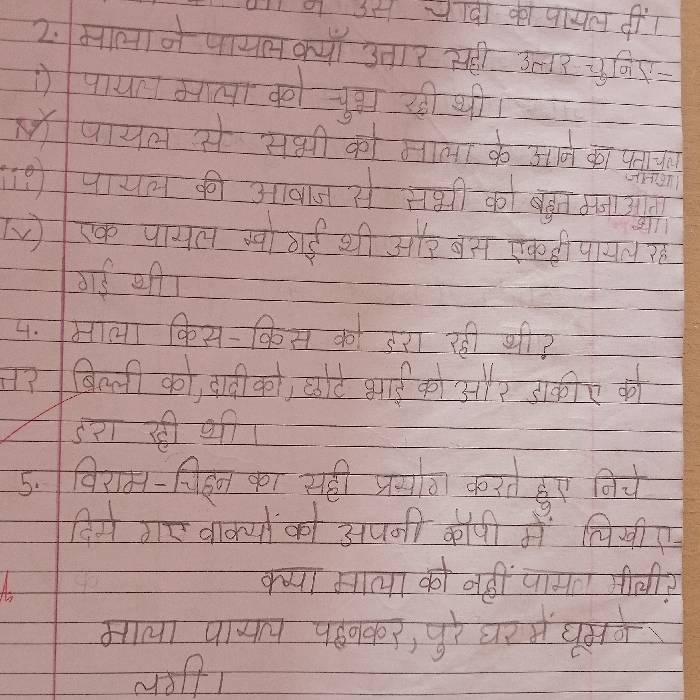 माँ ने उसे चांदी की पायल दीं।
2. माला ने पायल क्यों उतार सही उत्तर चुनिए-
i) पायल माला को चुभ रही थी।
पायल से सभी को माला के आने का पता चल जाता था।
iii) पायल की आवाज से सभी को बहुत मजा आता था।
iv) एक पायल खो गई थी और बस एक ही पायल रह
गई थी।
4. माला किस-किस को डरा रही थी?
बिल्ली को, दादी को, छोटे भाई को और डाकीए को
डरा रही थी।
5. विराम-चिह्न का सही प्रयोग करते हुए निचे
दिये गए वाक्यों को अपनी कॉपी में लिखीए-
क्या माला को नहीं पायल मीली?
माला पायल पहनकर, पुरे घर में घूमने
लगी।